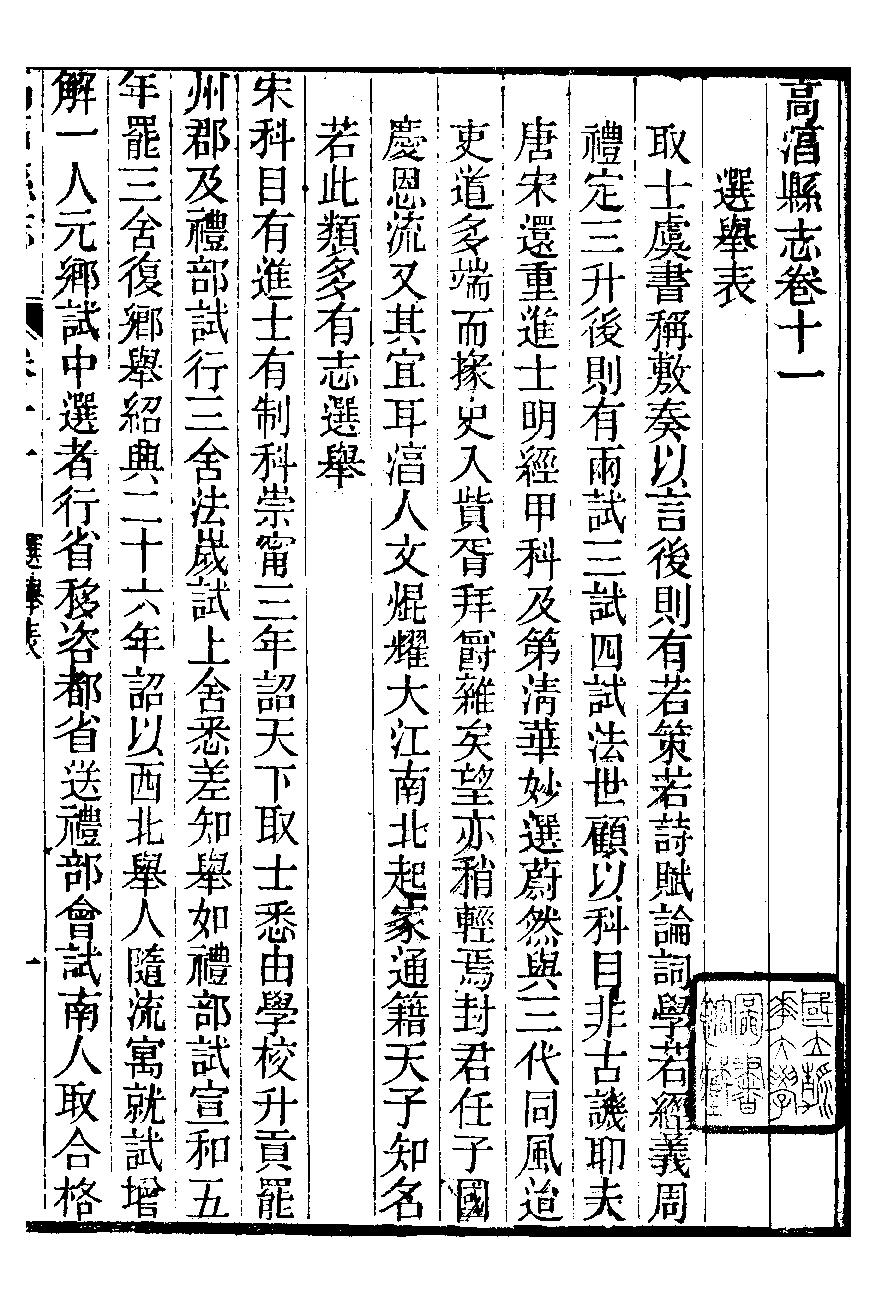 高淳縣志卷十一
選舉表
取士虞書稱敷奏以言後則有若策若詩賦論詞學若經義周
禮定三升後則有兩試三試四試法世顧以科目非古譏耶夫
唐宋還重進士明經甲科及第清華妙選蔚然與三代同風迨
吏道多端而掾史入貲胥拜爵雜矣望亦稍輕焉封君任子國
慶恩流又其宜耳湻人文焜耀大江南北起家通籍天子知名
若此類多有志選舉
宋科目有進士有制科崇甯三年詔天下取士悉由學校升貢罷
州郡及禮部試行三舍法歲試上舍悉差知舉如禮部試宣和五
年罷三舍復鄉舉紹興二十六年詔以西北舉人隨流寓就試增
解一人元鄉試中選者行省移咨都省送禮部會試南人取合格
選舉表
一